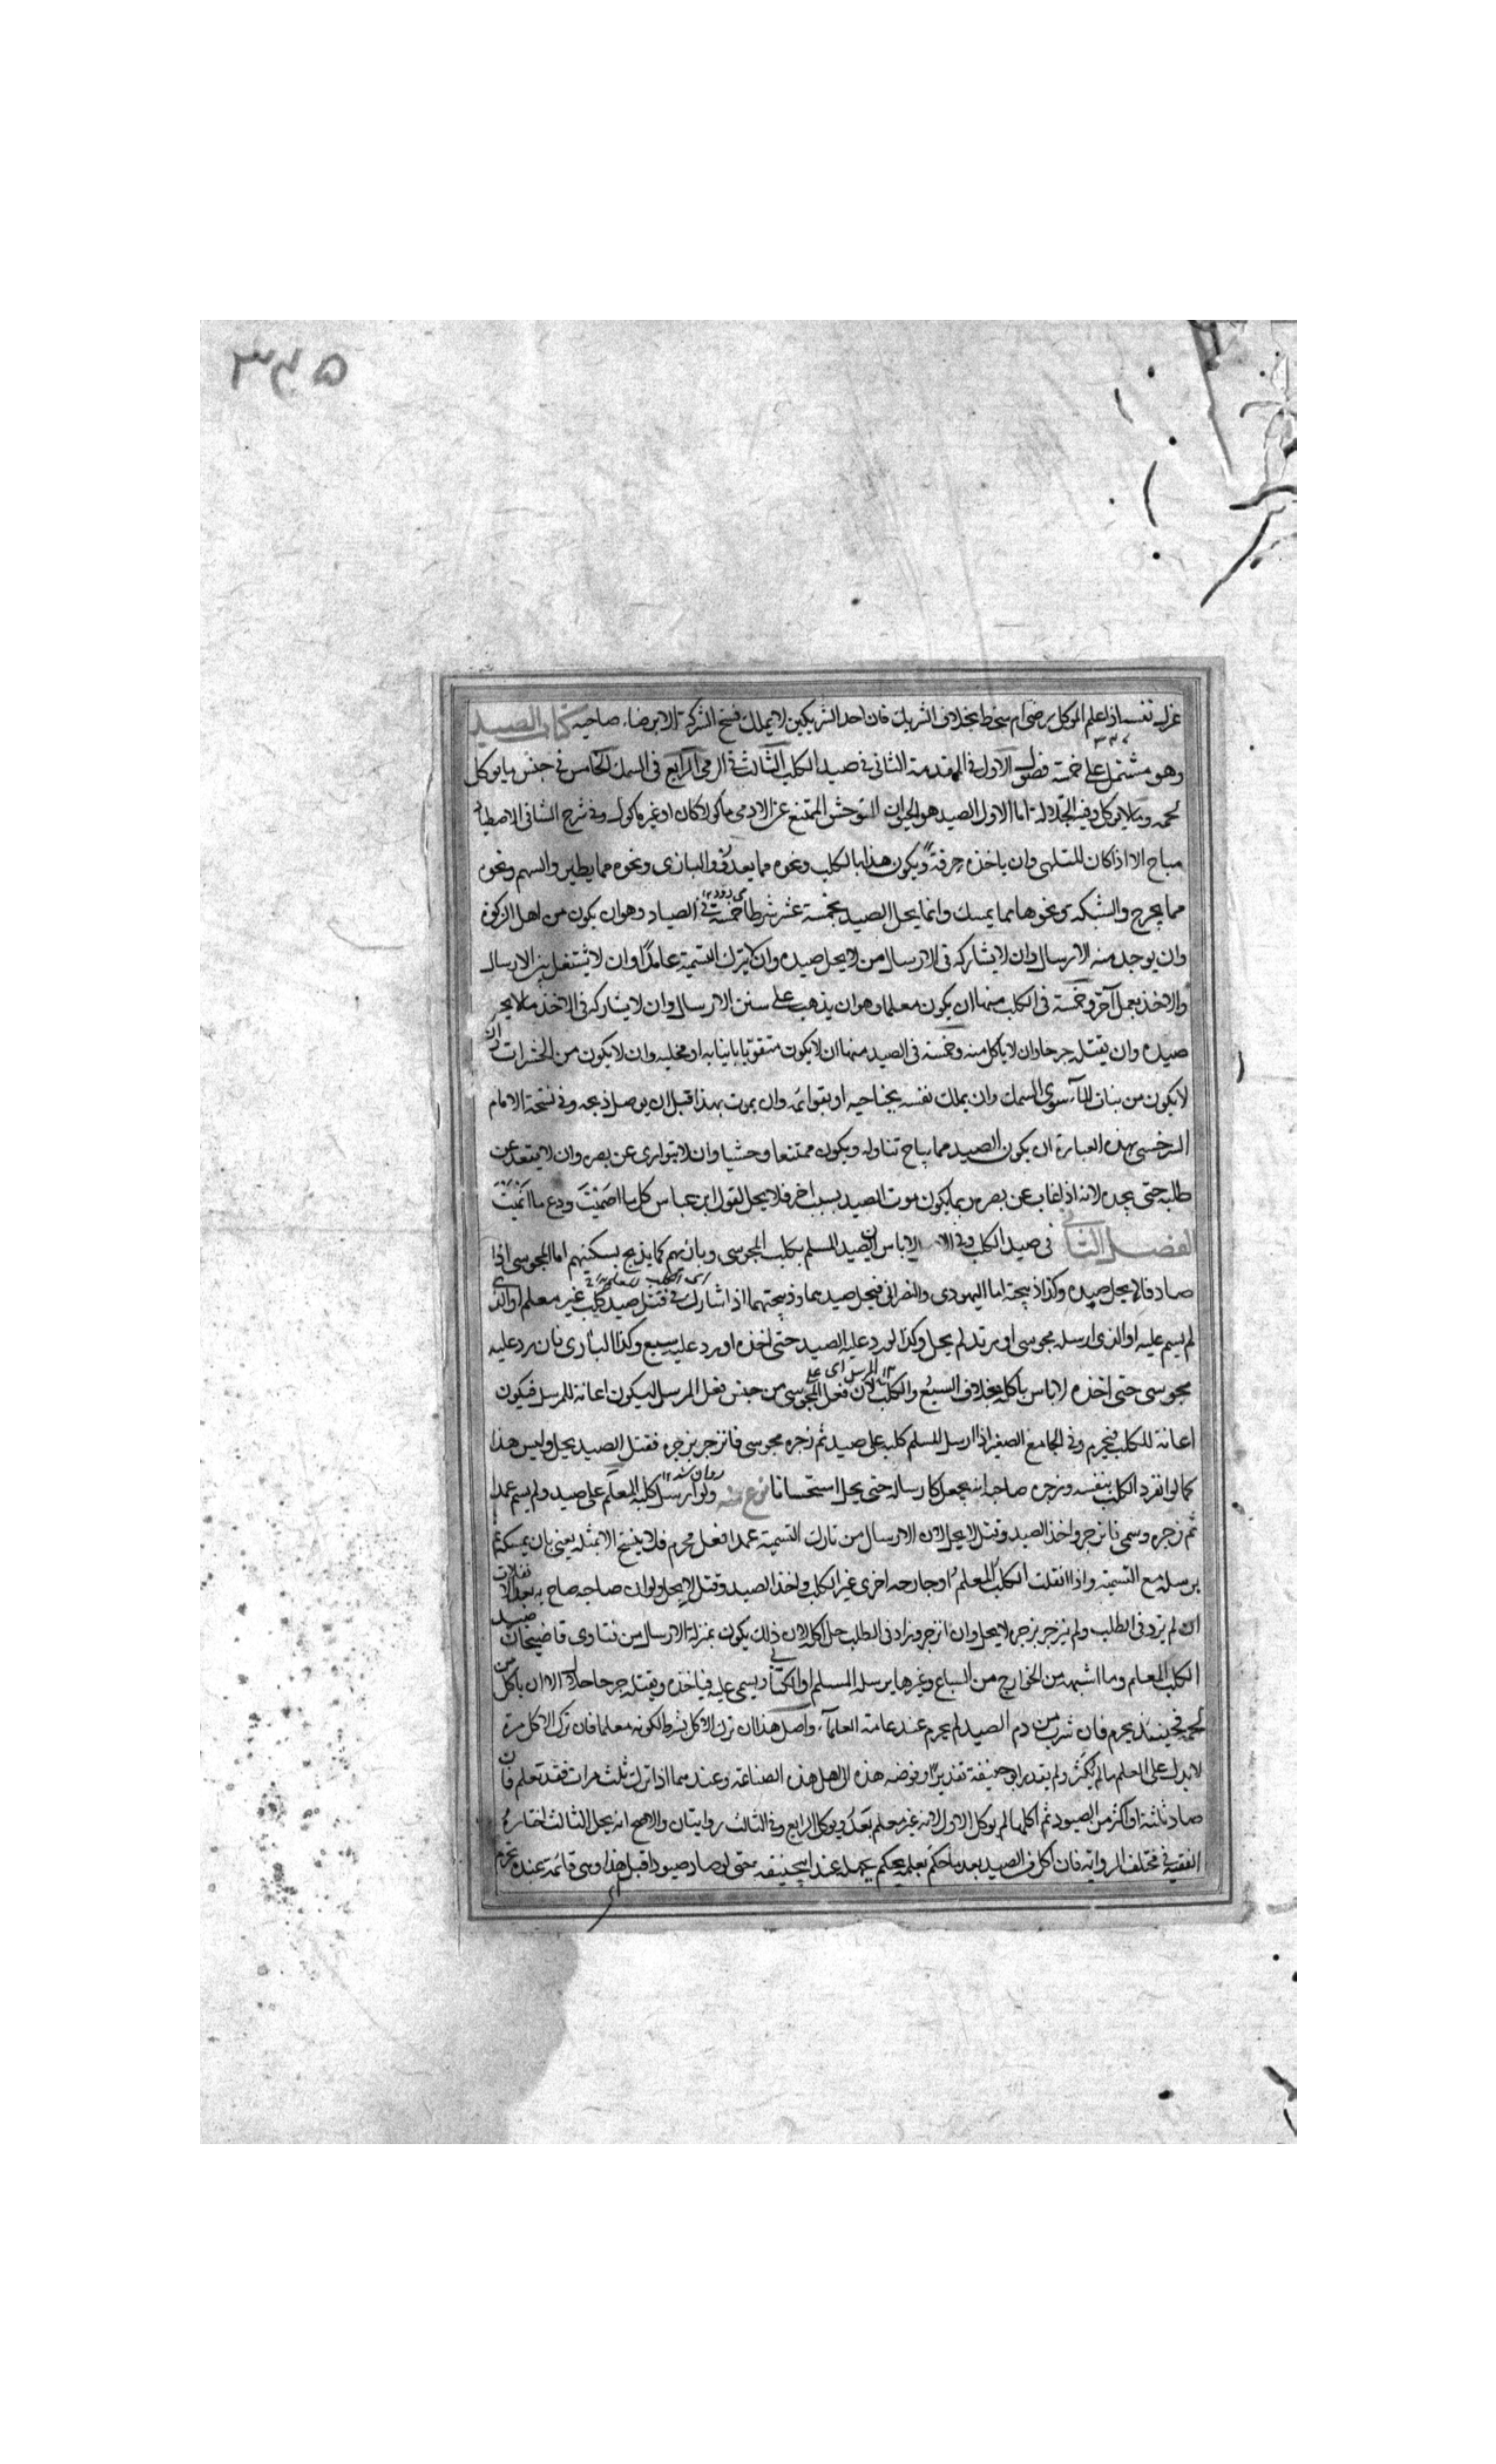 ۳۶۵
عزل نفسه اذا علم الموكل رضى ام سخط بخلاف الشريك فان احد الشريكين لا يملك فسخ الشركة الا برضاء صاحبه كتاب الصيد
وهو مشتمل على خمسة فصول الاول فى المقدمة الثانى فى صيد الكلب الثالث فى الرمى الرابع فى السمك الخامس فى جنس ما يوكل
لحمه وما لا يوكل وفيه الجلالة اما الاول الصيد هو الحيوان المتوحش الممتنع عن الادمى ماكولا كان او غير ماكول وفى شرح الشافى الاصطياد
مباح الا اذا كان للتلهى وان ياخذه حرفة ويكون هذا بالكلب ونحوه مما يعدو والبازى ونحوه مما يطير والسهم ونحوه
مما يجرح والشبكة ونحوها مما يمسك وانما يحل الصيد بخمسة عشر شرطا خمسة فى الصياد وهو ان يكون من اهل الزكوة
وان يوجد منه الارسال وان لا يشاركه فى الارسال من لا يحل صيده وان لا يترك التسمية عامدا وان لا يشتغل بين الارسال
والاخذ بعمل آخر وخمسة فى الكلب منها ان يكون معلما وهو ان يذهب على سنن الارسال وان لا يشاركه فى الاخذ ما لا يحل
صيده وان يقتله جرحا وان لا ياكل منه وخمسة فى الصيد منها ان لا يكون متقويا بانيابه او مخلبه وان لا يكون من الحشرات وان
لا يكون من بنات الماء سوى السمك وان يملك نفسه بجناحيه او بقوائمه وان يموت بهذا قبل ان يوصل ذبحه وفى نسخة الامام
السرخسى بهذه العبارة ان يكون الصيد مما يباح تناوله ويكون ممتنعا وحشيا وان لا يتوارى عن بصره وان لا يقعد عن
طلبه حتى يجده لانه اذا غاب عن بصره ربما يكون موت الصيد بسبب اخر فلا يحل لقول ابن عباس كل ما اصميت ودع ما انميت
الفصل الثانى فى صيد الكلب وفى الاصل لا باس ان يصيد المسلم بكلب المجوسى وبازيهم كما يذبح بسكينهم اما المجوسى اذا
صاد فلا يحل صيده وكذا ذبيحته اما اليهودى والنصرانى فيحل صيدهما وذبيحتهما اذا شارك فى قتل صيد كلب غير معلم او الذى
لم يسم عليه او الذى ارسله مجوسى او مرتد لم يحل وكذا لو رد عليه الصيد حتى اخذه او رد عليه سبع وكذا البازى فان رد عليه
مجوسى حتى اخذه لا باس باكله بخلاف السبع والكلب لان فعل المجوسى من جنس فعل المرسل ليكون اعانة للمرسل فيكون
اعانة للكلب فيحرم وفى الجامع الصغير اذا ارسل المسلم كلبه على صيد ثم زجره مجوسى فانزجر بزجره فقتل الصيد يحل وليس هذا
كما لو انفرد الكلب بنفسه وزجره صاحبه انه يجعل كارساله حتى يحل استحسانا نوع منه ولو ارسل كلبه المعلم على صيد ولم يسم عمدا
ثم زجره وسمى فانزجر واخذ الصيد وقتل لا يحل لان الارسال من تارك التسمية عمدا فعل محرم فلا ينسخ الا بمثله يعنى بان يمسكه ثم
يرسله مع التسمية واذا انفلت الكلب المعلم او جارحة اخرى غير الكلب واخذ الصيد وقتل لا يحل ولو ان صاحبه صاح به بعد الانفلات
ان لم يزد فى الطلب ولم ينزجر بزجره لا يحل وان انزجر وزاد فى الطلب حل اكله لان ذلك يكون بمنزلة الارسال من فتاوى قاضيخان صيد
الكلب المعلم وما اشبهه من الجوارح من السباع وغيرها يرسله المسلم او الكتابى ويسمى عليه فياخذه ويقتله جرحا حلال الا ان ياكل من
لحمه فحينئذ يحرم فان شرب من دم الصيد لم يحرم عند عامة العلماء واصل هذا ان ترك الاكل شرط لكونه معلما فان ترك الاكل مرة
لا يدل على العلم ما لم يكثر ولم يقدر ابو حنيفة تقديرا وفوضه هذه الى اهل هذه الصناعة وعندهما اذا ترك ثلث مرات فقد تعلم فان
صاد ثلثة او اكثر من الصيود ثم اكلها لم يوكل الاول لانه غير معلم بعد ويوكل الرابع وفى الثالث روايتان والاصح انه يحل الثالث اختاره
الفقيه فى مختلف الرواية فان اكل من الصيد بعد ما حكم بعلمه يحكم بجهله عند ابى حنيفة حتى لو صاد صيودا قبل هذا وهى قائمة عنده تحرم